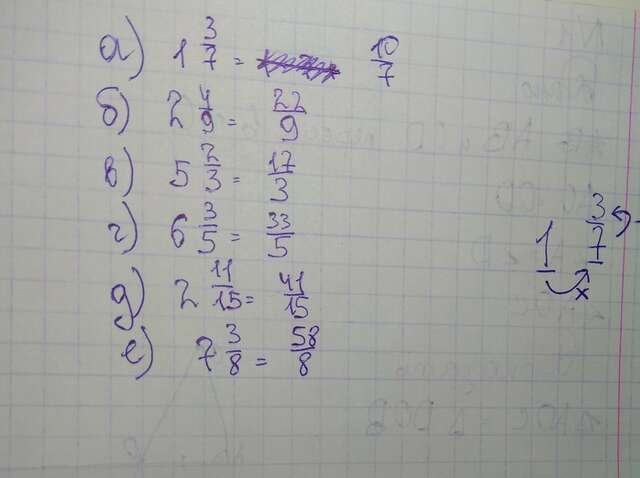 а) 1 3/7 = 10/7
б) 2 4/9 = 22/9
в) 5 2/3 = 17/3
г) 6 3/5 = 33/5
д) 2 11/15 = 41/15
е) 7 3/8 = 58/8
1 3/7
x